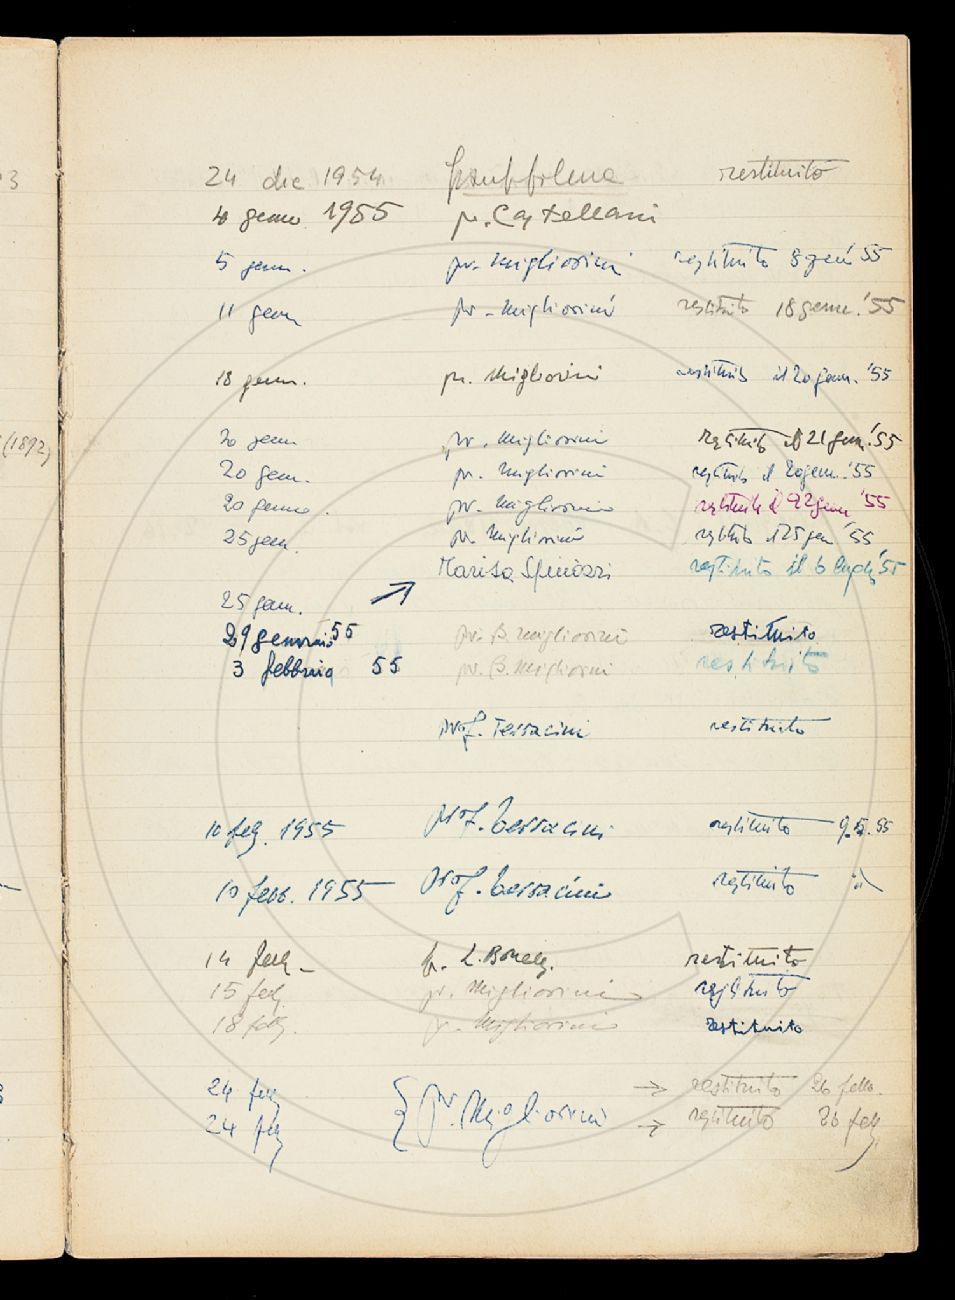 3
24 dic 1954 restituito
4 genn. 1955 pr. Castellani
5 genn. pr. Migliorini restituito 8 gen '55
11 genn pr. Migliorini restituito 18 genn. '55
18 genn. pr. Migliorini restituito il 20 genn. '55
(1892)
20 genn pr. Migliorini restituito il 21 gen. '55
20 genn. pr. Migliorini restituito il 20 genn. '55
20 genn. pr. Migliorini restituito il 22 genn '55
25 genn. pr. Migliorini restituito 125 gen '55
Marisa restituito il 6 '55
25 genn.
29 gennaio 55 pr. B. Migliorini restituito
3 febbraio 55 pr. B. Migliorini restituito
prof. Terracini restituito
10 feb. 1955 prof. Terracini restituito
10 febb. 1955 prof. Terracini restituito "
14 febb. restituito
15 feb. pr. Migliorini restituito
18 febb. pr. Migliorini restituito
24 feb. { pr. Migliorini → restituito 26 febb.
24 feb → restituito 26 feb.